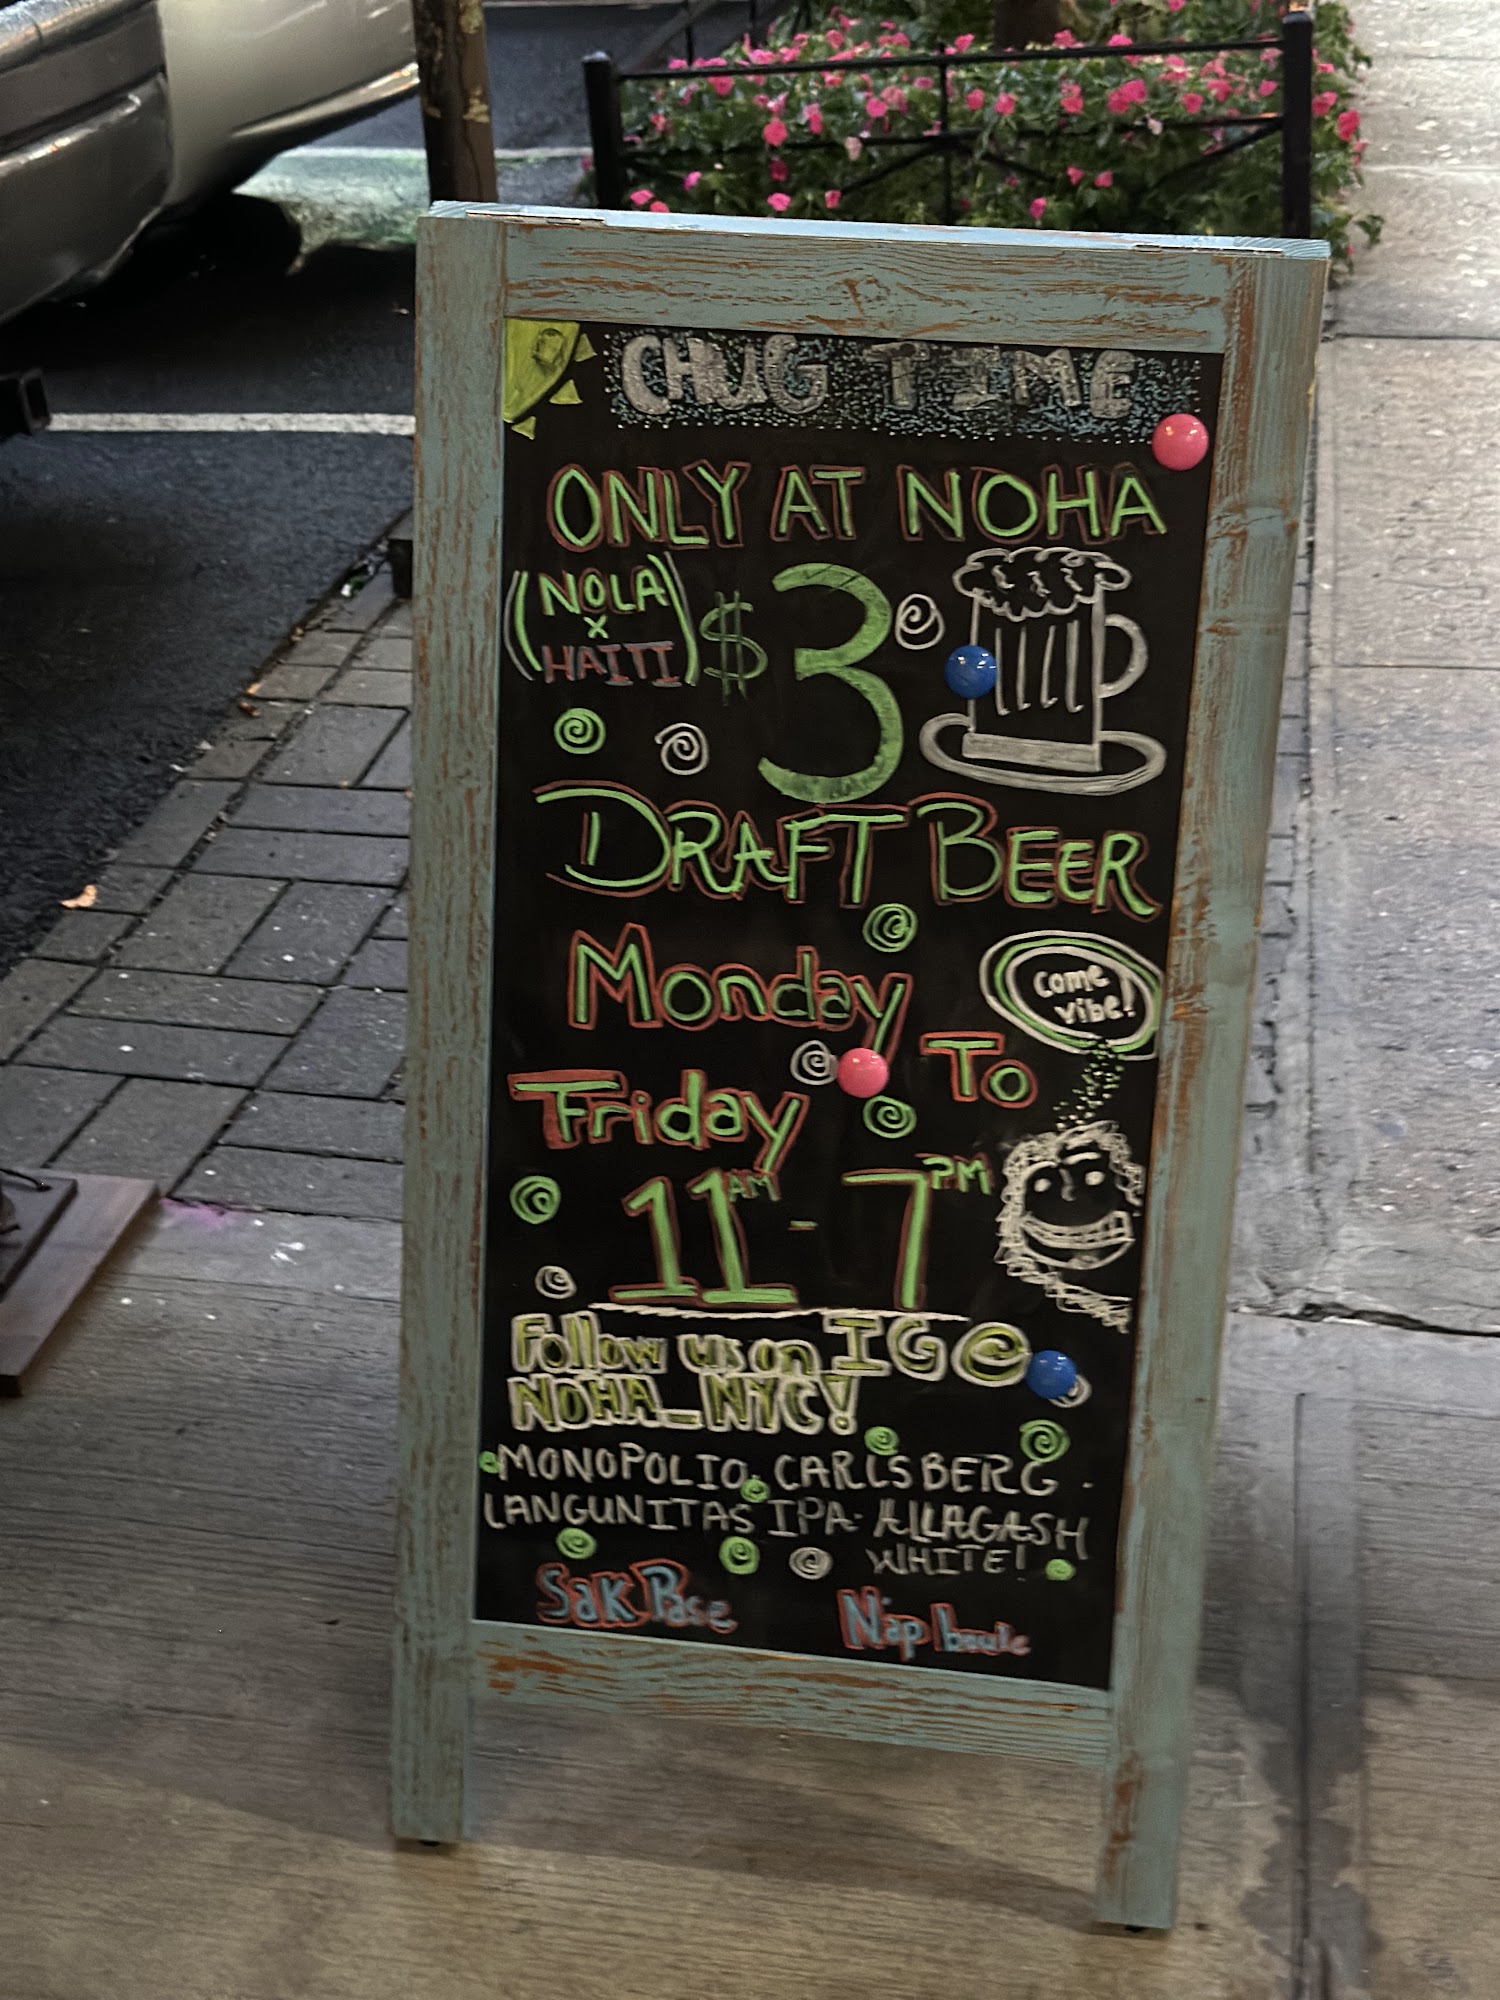 CHUG TIME
ONLY AT NOHA
(NOLA
x
HAITI)
$3
DRAFT BEER
Monday
To
Friday
come
vibe!
11AM - 7PM
Follow us on IG @
NOHA_NYC!
MONOPOLIO. CARLSBERG.
LANGUNITAS IPA- ALLAGASH
WHITE!
Sak Pase
N'ap boule